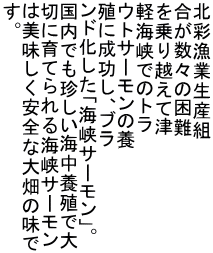 北彩漁業生産組
合が数々の困難
を乗り越えて津
軽海峡でのトラ
ウトサーモンの養
殖に成功し、ブラ
ンド化した「海峡サーモン」。
国内でも珍しい海中養殖で大
切に育てられる海峡サーモン
は美味しく安全な大畑の味で
す。